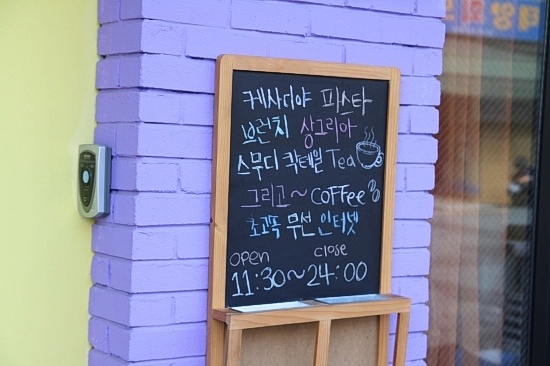 케사디야 피스타
브런치 상그리아
스무디 칵테일 Tea
그리고~ coffee
초고속 무선 인터넷
open close
11:30~24:00